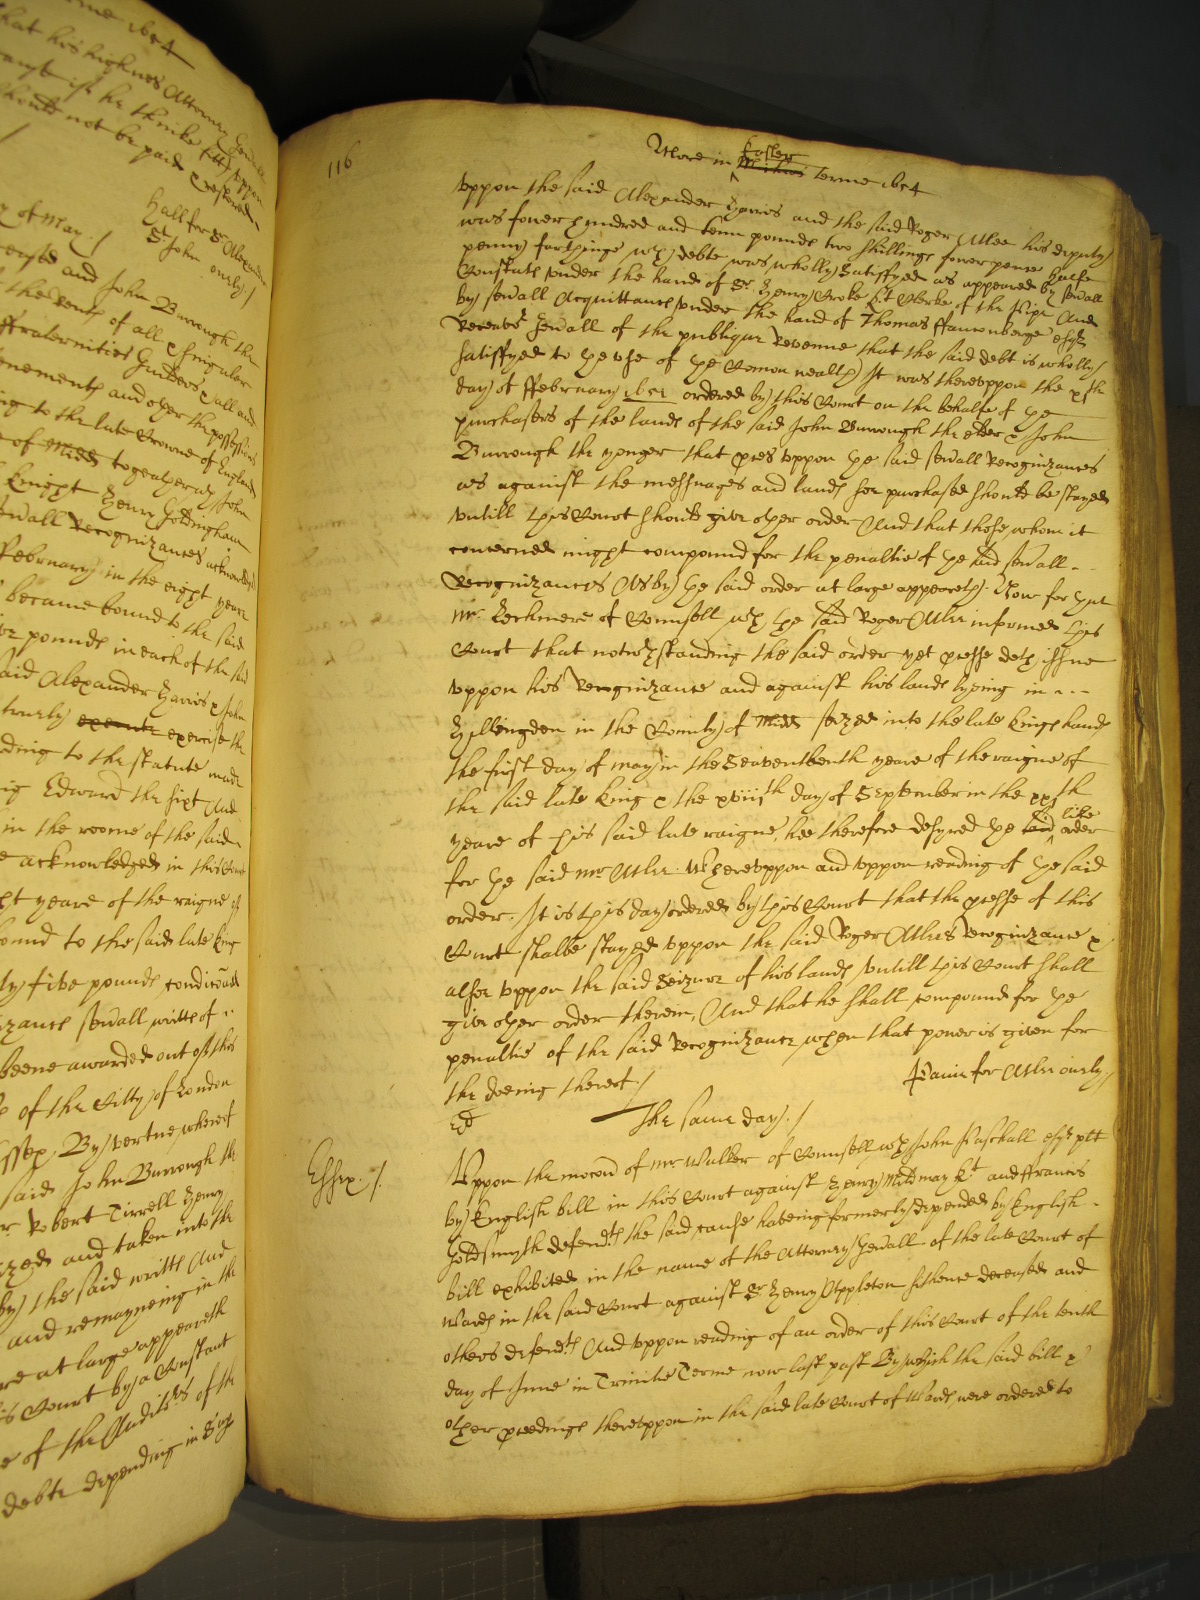 rme 1654
that his highnes Attorney Gen
he thinke fitt vppon
should not be paid & restored
y of May /
Hall for Sr Alexander
St John onely /
and John Burrough the
the rents of all & singuler
ffraternities Guilders & all and
enements and other the possessions
ng to the late Crowne of England
of Midd togeather wth John
knight Henry Goldingham
Recognizances acknowledged
ffebruary in the eight yeare
became bound to the said
pounds in each of the said
said Alexander Harris & John
truely execute exercise the
ding to the statute made
ig Edward the sixt And
in the roome of the said
e acknowledged in this Court
yeare of the raigne of
ound to the said late King
ly five pounds, condiconed
zances seu'all writts of
beene awarded out of this
of the Citty of London
ssex, By vertue whereof
said John Burrough the
Robert Tirrell Henry
zed and taken into the
by the said writts And
and remayneing in the
re at large appeareth
is Court by a Constant
e of the Auditors of the
debte depending in
116
More in Easter Michas terme 1654
vppon the said Alexander Harris and the said Roger Atlee his deputy
was fower hundred and tenn pounds two shillings fower pence halfe
penny farthinge wch debte was wholly satisfyed as appeared by seu'all
Constats vnder the hand of Sr Henry Croke kt Clerke of the Pipe And
by seu'all Acquittances vnder the hand of Thomas ffauconberge esqr
Receavor Gen'all of the publique Revenue that the said debt is wholly
satisfyed to the vse of the Comon wealth It was therevppon the xith
day of ffebruary 1651 ordered by this Court on the behalfe of the
purchasers of the lands of the said John Burrough the elder & John
Burrough the yonger that proces vppon the said seu'all Recognizances
as against the messuages and lands soe purchased should be stayed
vntill this Court should give other order And that those whom it
concerned might compound for the penaltie of the said seu'all
Recognizances As by the said order at large appeareth. Now for that
Mr. Lechmere of Counsell wth the said Roger Atlee informed this
Court that notwthstanding the said order yet processe doth issue
vppon his Recognizance and against his lands lyeing in
Hillingdon in the County of Midd seized into the late kings hands
the first day of May in the Seaventeenth yeare of the raigne of
the said late king & the xviiith day of September in the xxith
yeare of his said late raigne, hee therefore desyred the said like order
for the said Mr Atlee. Wherevppon and vppon reading of the said
order. It is this day ordered by this Court that the processe of this
Court shalbe stayed vppon the said Roger Atlees Recognizance &
alsoe vppon the said Seizure of his lands vntill this Court shall
give other order therein, And that he shall compound for the
penaltie of the said Recognizance when that power is given for
the doeing thereof. /
Payne for Atlee onely. /
Ed
The same day. /
Essex. /.
Vppon the mocon of Mr. Walker of Counsell wth John Paschall esqr plt
by English bill in this Court against Henry Mildmay kt and ffrancis
Goldsmyth defendts the said cause haveing formerly depended by English
bill exhibited in the name of the Attorney Gen'all of the late Court of
Wards in the said Court against Sr Henry Appleton sithence deceased and
others defendts And vppon reading of an order of this Court of the tenth
day of June in Trinitie Terme now last past By which the said bill &
other proceedings therevppon in the said late Court of Wards were ordered to